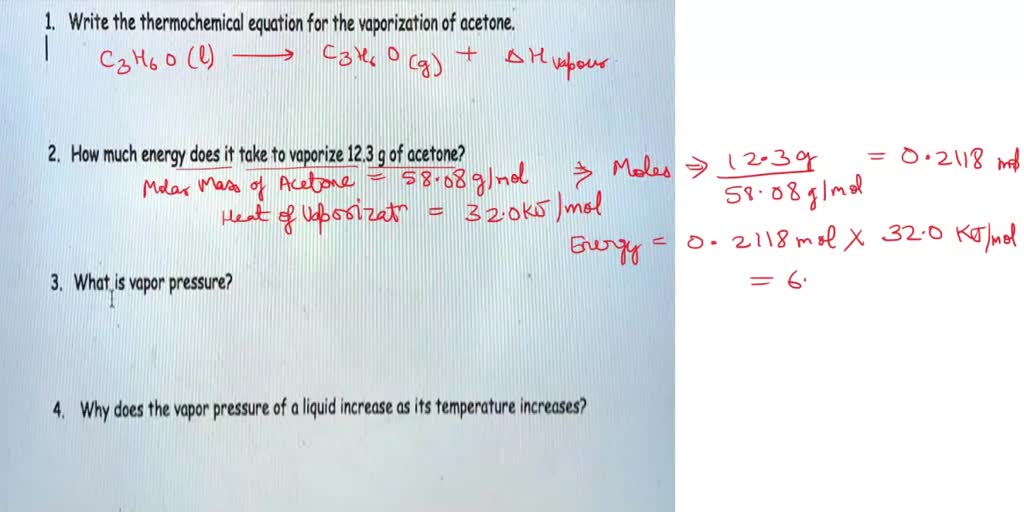 1. Write the thermochemical equation for the vaporization of acetone.
C3H6O (l) ⟶ C3H6O (g) + ΔH vapour
2. How much energy does it take to vaporize 12.3 g of acetone?
Molar Mass of Acetone = 58.08 g/mol ⇒ Moles ⇒ 12.3g / 58.08 g/mol = 0.2118 mol
Heat of Vaporizatn = 32.0 KJ/mol
Energy = 0.2118 mol X 32.0 KJ/mol
= 6.
3. What is vapor pressure?
4. Why does the vapor pressure of a liquid increase as its temperature increases?